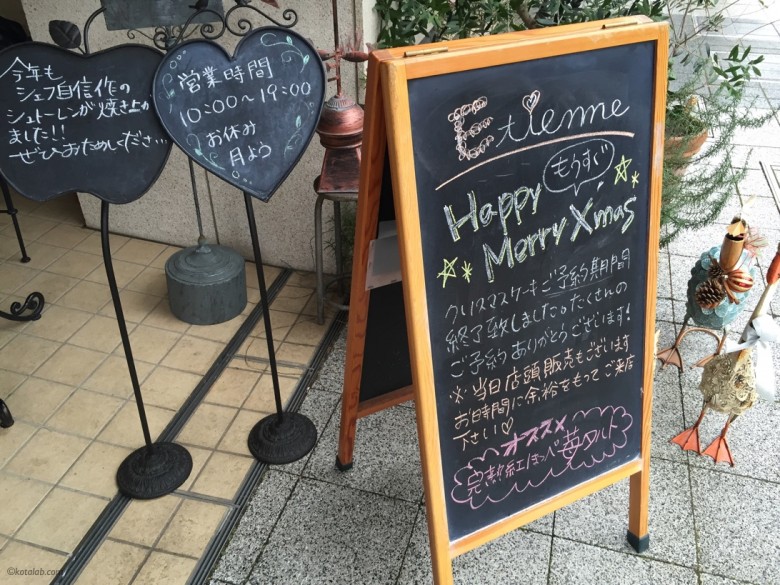 今年も
シェフ自信作の
シュトーレンが焼き上がり
ました!!
ぜひおためしくださ...
営業時間
10:00〜19:00
お休み
月よう
Etienne
もうすぐ
Happy
Merry Xmas
クリスマスケーキご予約期間
終了致しました。たくさんの
ご予約ありがとうございます!
※当日店頭販売もございます
お時間に余裕をもってご来店
下さい♡
オススメ
完熟紅ほっぺ苺タルト
©kotolab.com